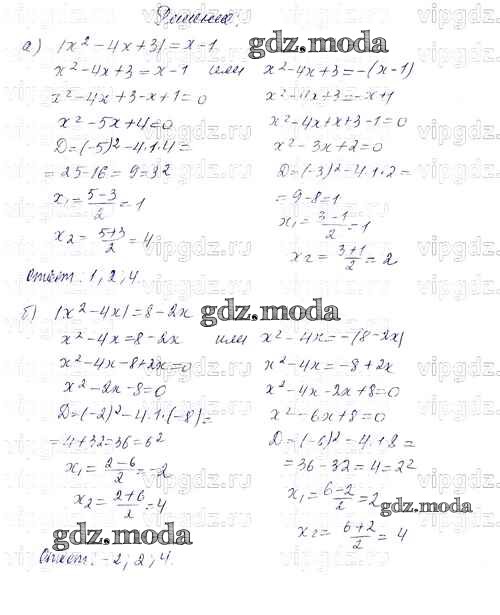 Решение.
а) |x² - 4x + 3| = x - 1
x² - 4x + 3 = x - 1 или x² - 4x + 3 = -(x - 1)
x² - 4x + 3 - x + 1 = 0 x² - 4x + 3 = -x + 1
x² - 5x + 4 = 0 x² - 4x + x + 3 - 1 = 0
D = (-5)² - 4·1·4 = x² - 3x + 2 = 0
= 25 - 16 = 9 = 3² D = (-3)² - 4·1·2 =
x₁ = (5-3)/2 = 1 = 9 - 8 = 1
x₂ = (5+3)/2 = 4 x₁ = (3-1)/2 = 1
x₂ = (3+1)/2 = 2
Ответ: 1, 2, 4.
б) |x² - 4x| = 8 - 2x
x² - 4x = 8 - 2x или x² - 4x = -(8 - 2x)
x² - 4x - 8 + 2x = 0 x² - 4x = -8 + 2x
x² - 2x - 8 = 0 x² - 4x - 2x + 8 = 0
D = (-2)² - 4·1·(-8) = x² - 6x + 8 = 0
= 4 + 32 = 36 = 6² D = (-6)² - 4·1·8 =
x₁ = (2-6)/2 = -2 = 36 - 32 = 4 = 2²
x₂ = (2+6)/2 = 4 x₁ = (6-2)/2 = 2
x₂ = (6+2)/2 = 4
Ответ: -2; 2; 4.
gdz.moda
gdz.moda
gdz.moda
gdz.moda
vipgdz.ru